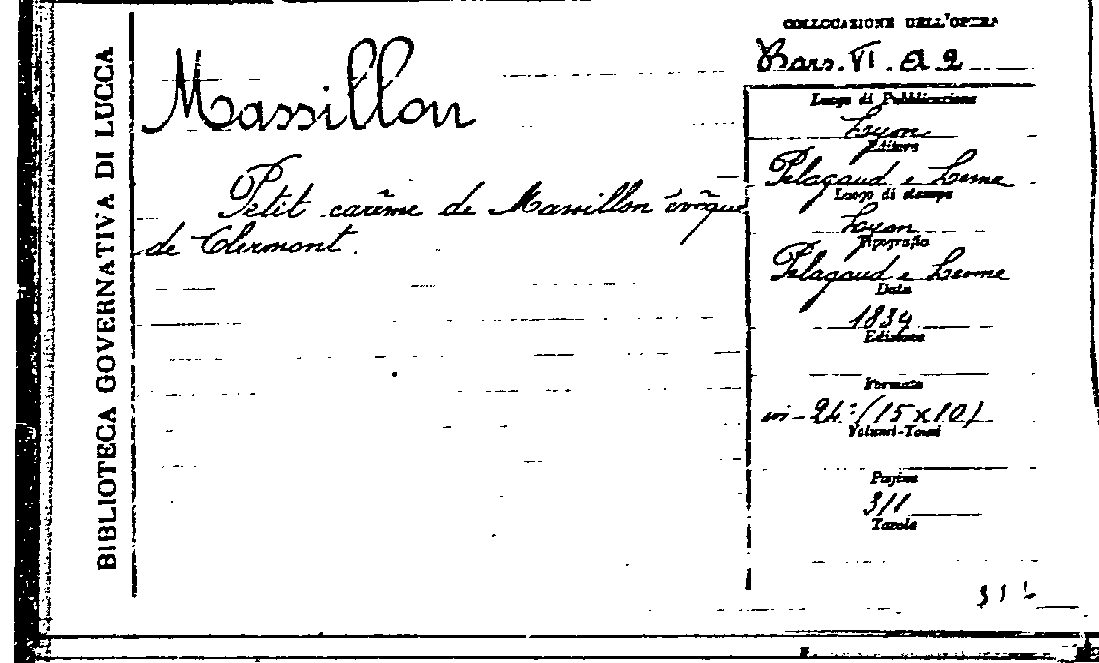 BIBLIOTECA GOVERNATIVA DI LUCCA
Massillon
Petit carême de Massillon évêque
de Clermont.
COLLOCAZIONE DELL'OPERA
Bars. VI. A 2
Luogo di Pubblicazione
Lyon
Editore
Pelagaud e Lesne
Luogo di stampa
Lyon
Tipografia
Pelagaud e Lesne
Data
1834
Edizione
Formato
in-24° (15x10)
Volumi-Tomi
Pagine
311
Tavole